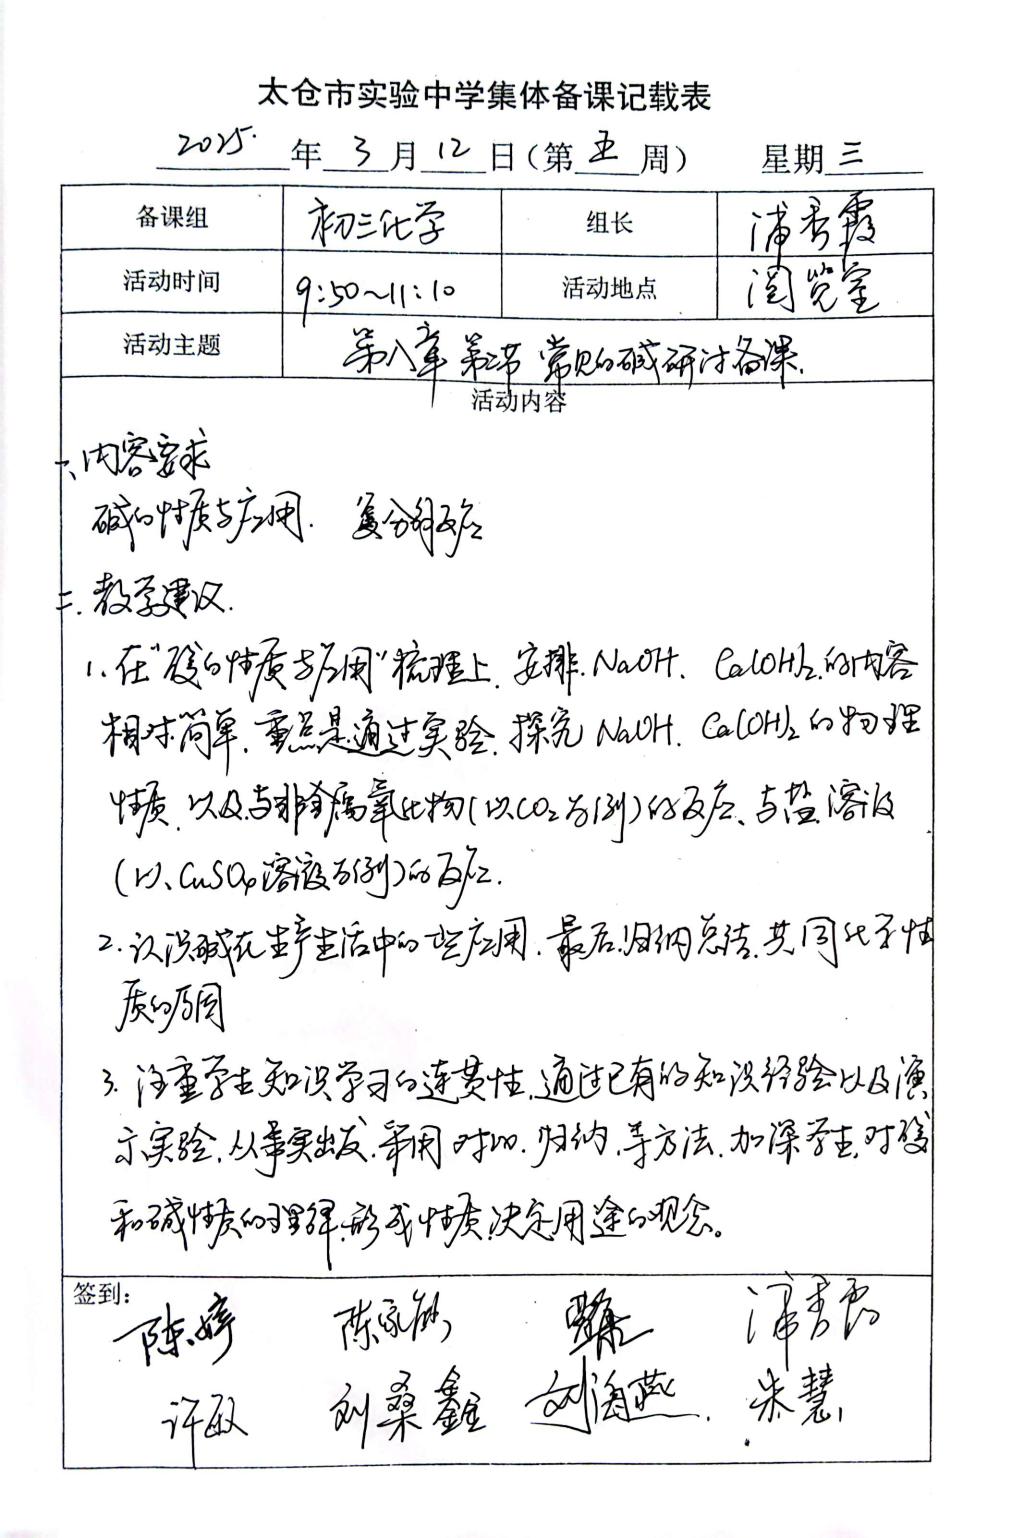 太仓市实验中学集体备课记载表
2025年3月12日(第五周) 星期三
备课组 初三化学 组长 浦秀霞
活动时间 9:50~11:10 活动地点 阅览室
活动主题 第八章 第二节 常见的碱研讨备课.
活动内容
一、内容要求
碱的性质与应用. 复分解反应
二.教学建议.
1.在"酸的性质与应用"梳理上.安排.NaOH. Ca(OH)2.的内容
相对简单.重点是通过实验.探究NaOH.Ca(OH)2的物理
性质.以及与非金属氧化物(以CO2为例)的反应、与盐溶液
(以CuSO4溶液为例)的反应.
2.认识碱在生产生活中的一些应用.最后归纳总结.共同化学性
质的原因
3.注重学生知识学习的连贯性.通过已有的知识经验以及演
示实验.从事实出发.采用对比.归纳.等方法.加深学生.对酸
和碱性质的理解.形成性质决定用途的观念。
签到:
陈婷 陈家 浦秀霞
许敏 刘桑鑫 刘海燕. 朱慧